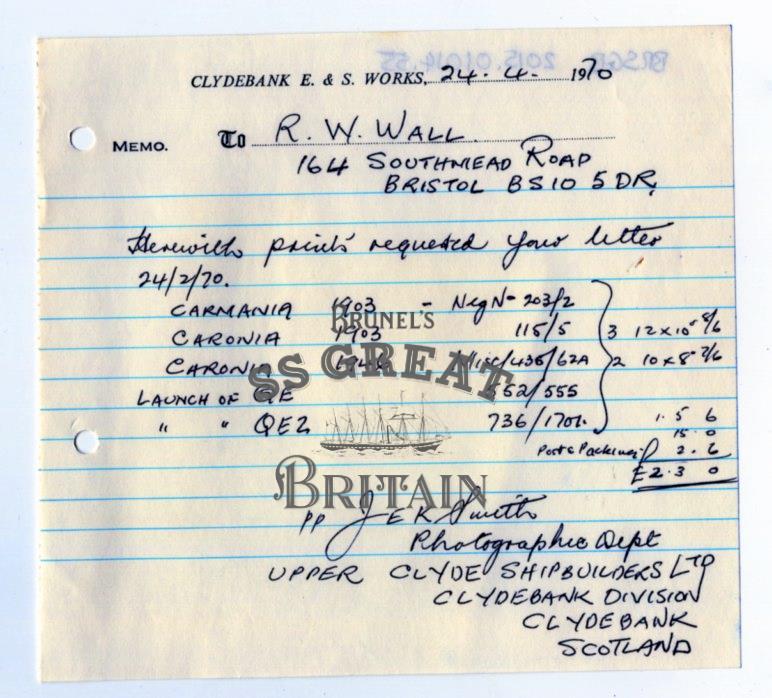 BRSGB 2015.01014.55
CLYDEBANK E. & S. WORKS, 24.4. 1970
MEMO. To R. W. WALL.
164 SOUTHMEAD ROAD
BRISTOL BS10 5DR,
Herewith prints requested your letter
24/2/70.
CARMANIA 1903 - Neg No 203/2
CARONIA 1903 115/5 3 12 x 10" 8/6
CARONIA 2 10 x 8" 7/6
LAUNCH OF QE 552/555
" " QE2 736/1701. 1. 5 6
15. 0
Post & Packing 2. 6
£2. 3 0
BRUNEL'S
SS GREAT
BRITAIN
pp J E K Smith
Photographic Dept
UPPER CLYDE SHIPBUILDERS LTD
CLYDEBANK DIVISION
CLYDEBANK
SCOTLAND